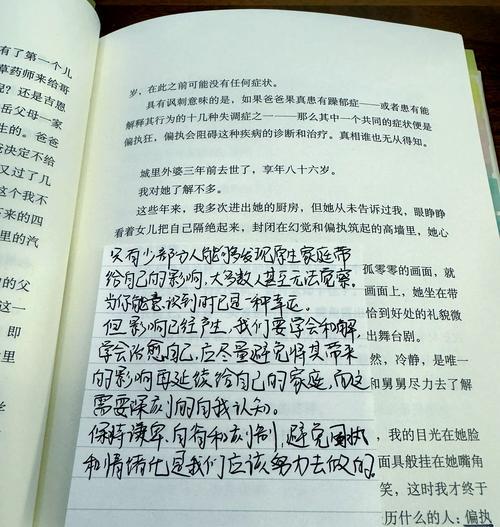 有了第一个儿
草药师来给哥
呢？还是吉恩
岳父母一家
生的。爸爸
决定不给
又过了几
这个我不
下来的四
里的汽
中的父
放
即
里
岁，在此之前可能没有任何症状。
具有讽刺意味的是，如果爸爸果真患有躁郁症——或者患有能
解释其行为的十几种失调症之一——那么其中一个共同的症状便是
偏执狂，偏执会阻碍这种疾病的诊断和治疗。真相谁也无从得知。
城里外婆三年前去世了，享年八十六岁。
我对她了解不多。
这些年来，我多次进出她的厨房，但她从未告诉过我，眼睁睁
看着女儿把自己隔绝起来，封闭在幻觉和偏执筑起的高墙里，她心
孤零零的画面，就
画面上，她坐在带
恰到好处的礼貌微
出舞台剧。
然，冷静，是唯一
和舅舅尽力去了解
，我的目光在她脸
面具般挂在她嘴角
笑，这时我才终于
历什么的人：偏执
只有少部分人能够发现原生家庭带
给自己的影响，大多数人甚至无法觉察。
当你能意识到时已是一种幸运。
但影响已经产生，我们要学会和解，
学会治愈自己，应尽量避免将其带来
的影响再延续给自己的家庭，而这
需要深刻的自我认知。
保持谦卑、自省和克制，避免固执
和情绪化是我们应该努力去做的。